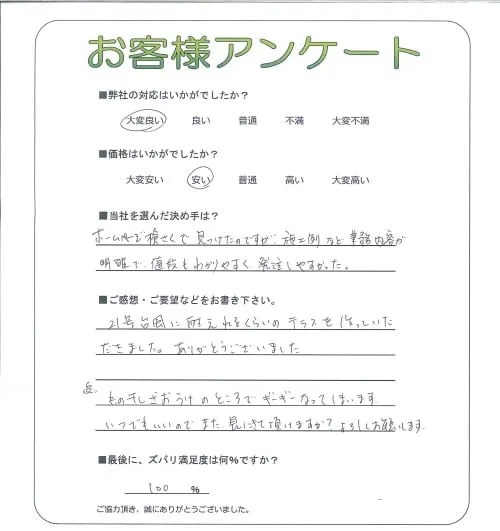 お客様アンケート
■弊社の対応はいかがでしたか？
大変良い 良い 普通 不満 大変不満
■価格はいかがでしたか？
大変安い 安い 普通 高い 大変高い
■当社を選んだ決め手は？
ホームページ検さくで見つけたのですが、施工例など業務内容が
明確で、値段もわかりやすく発注しやすかった。
■ご感想・ご要望などをお書き下さい。
21号台風に耐えれるくらいのテラスを作っていた
だきました。ありがとうございました
追.
ものほしざおうけのところでギーギーなってます
いつでもいいのでまた見にきて頂けますか？よろしくお願いします.
■最後に、ズバリ満足度は何％ですか？
100 ％
ご協力頂き、誠にありがとうございました。